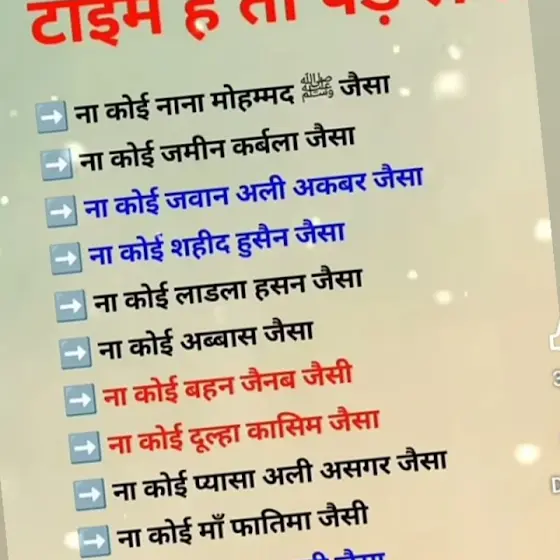 टाइम है तो पढ़
➡ ना कोई नाना मोहम्मद ﷺ जैसा
➡ ना कोई जमीन कर्बला जैसा
➡ ना कोई जवान अली अकबर जैसा
➡ ना कोई शहीद हुसैन जैसा
➡ ना कोई लाडला हसन जैसा
➡ ना कोई अब्बास जैसा
➡ ना कोई बहन जैनब जैसी
➡ ना कोई दूल्हा कासिम जैसा
➡ ना कोई प्यासा अली असगर जैसा
➡ ना कोई माँ फातिमा जैसी